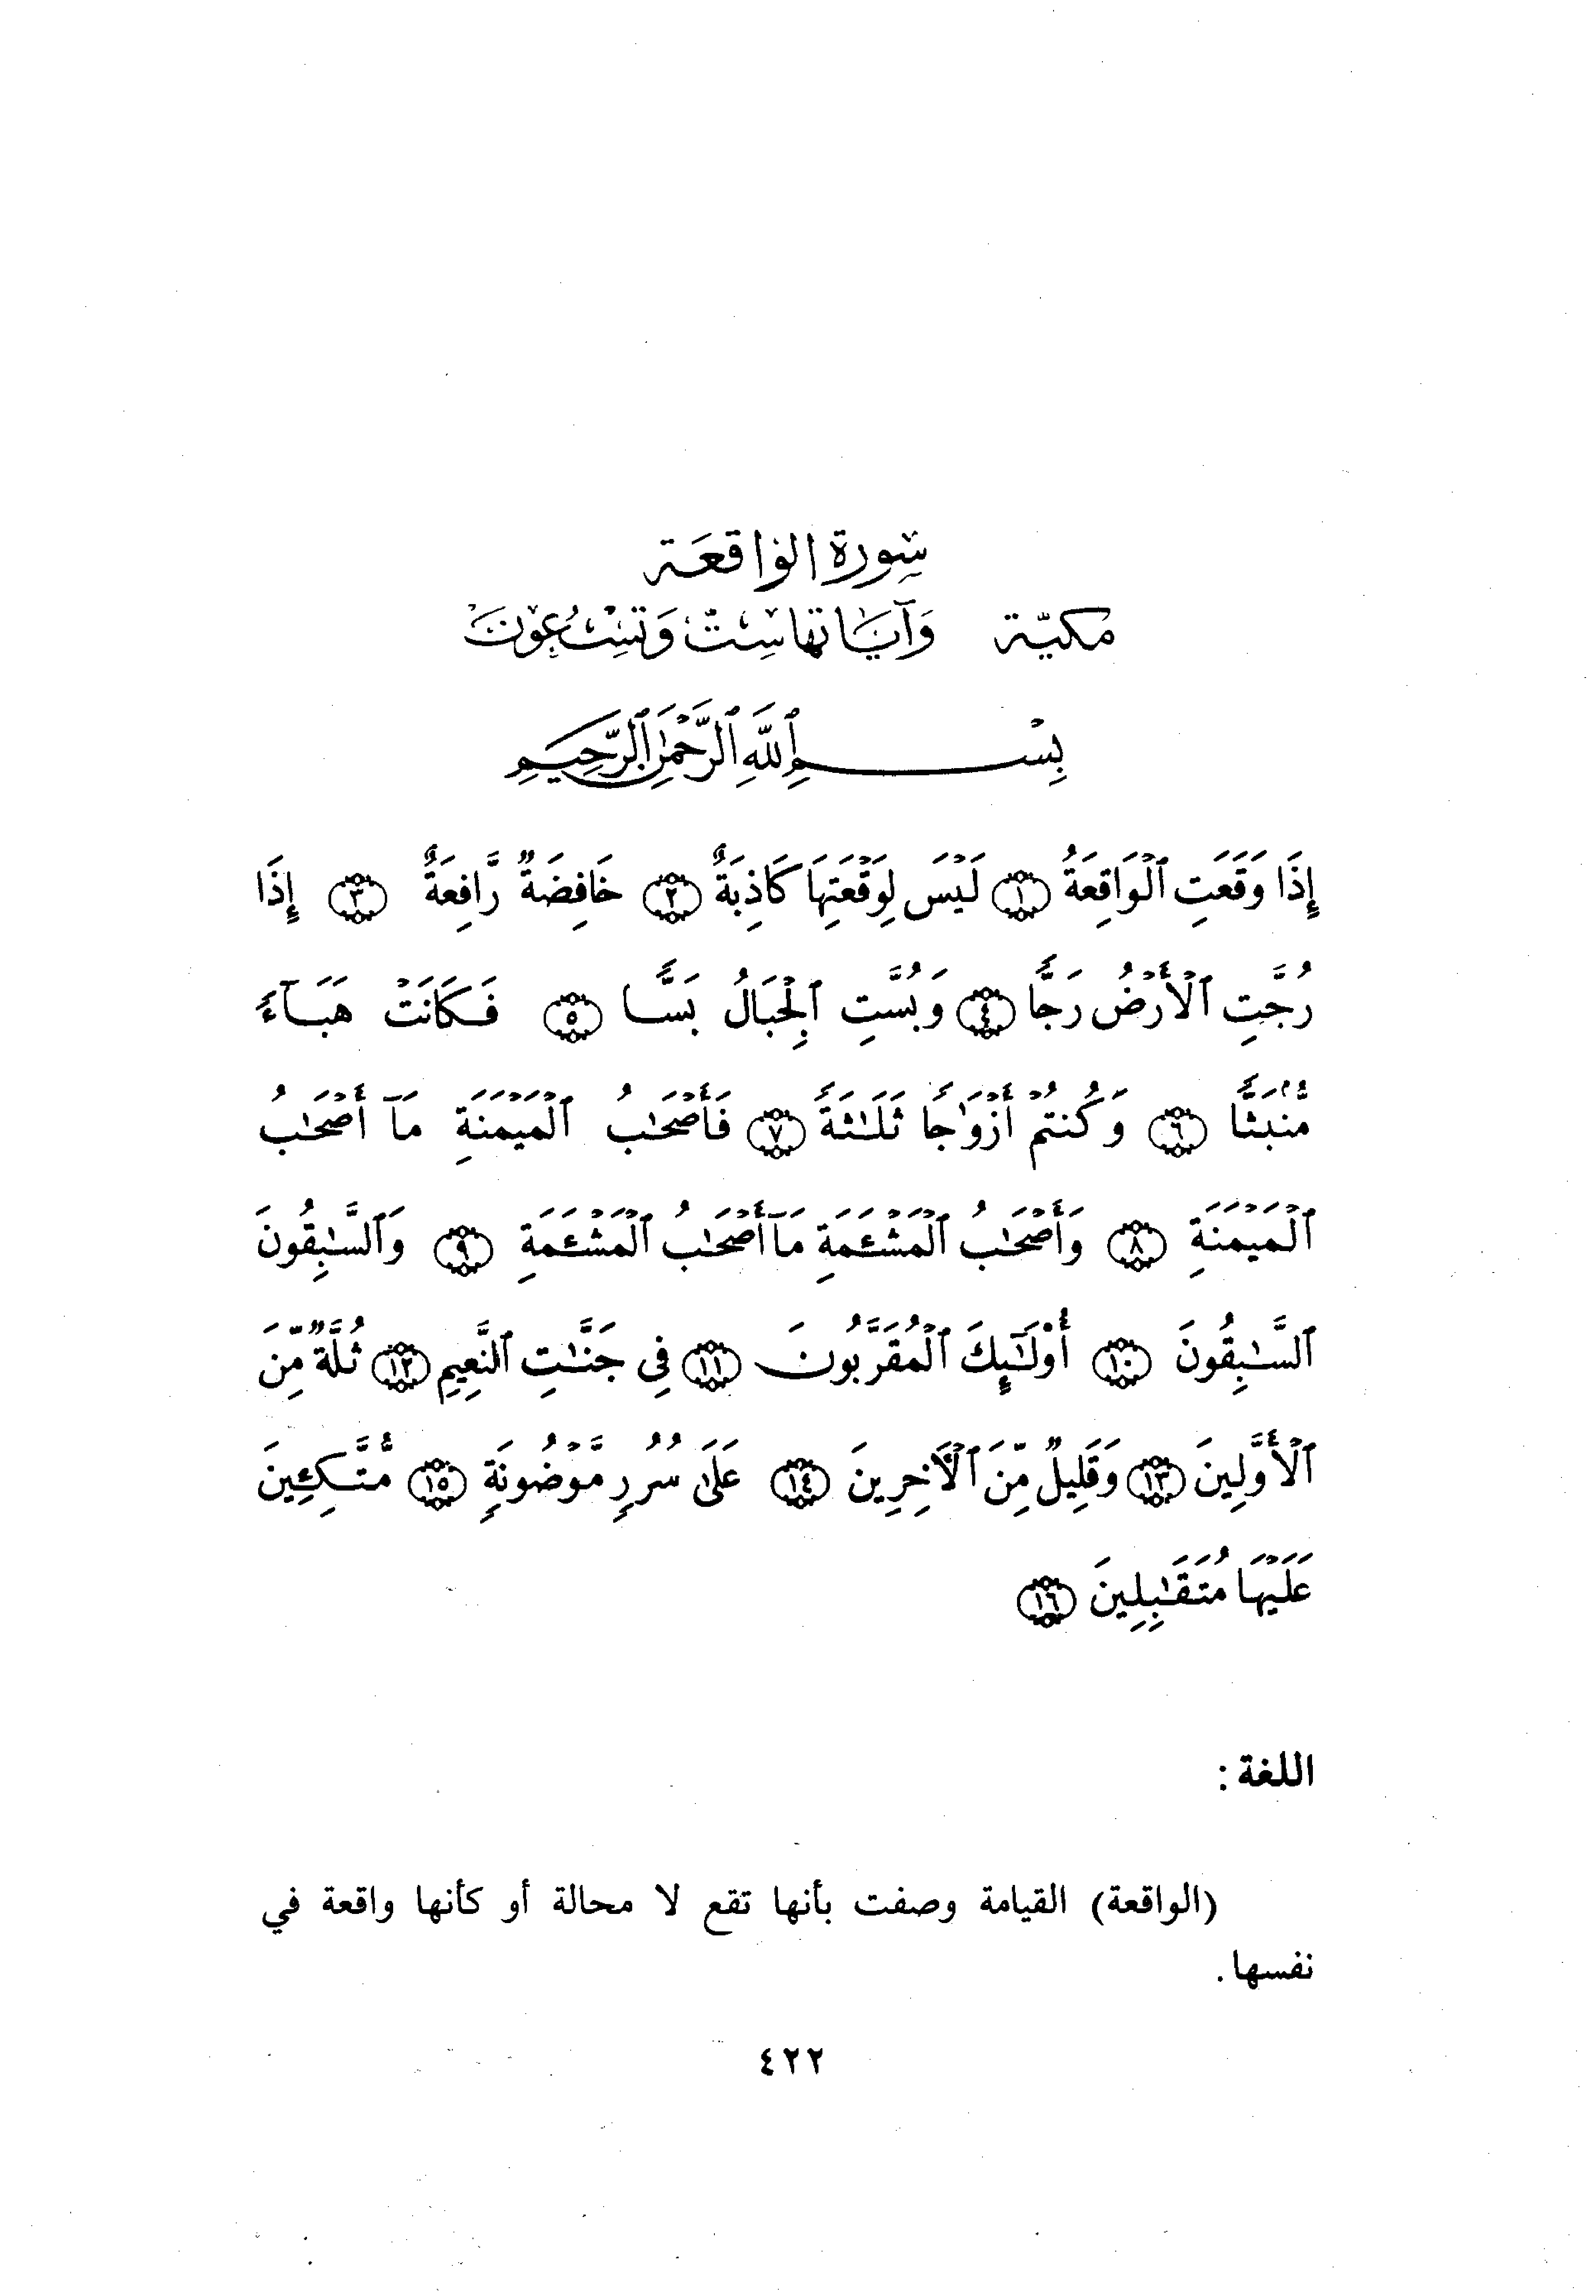 سورة الواقعة
مكية وآياتها ست وتسعون
بِسْمِ ٱللَّهِ ٱلرَّحْمَٰنِ ٱلرَّحِيمِ
إِذَا وَقَعَتِ ٱلْوَاقِعَةُ ﴿١﴾ لَيْسَ لِوَقْعَتِهَا كَاذِبَةٌ ﴿٢﴾ خَافِضَةٌ رَّافِعَةٌ ﴿٣﴾ إِذَا
رُجَّتِ ٱلْأَرْضُ رَجًّا ﴿٤﴾ وَبُسَّتِ ٱلْجِبَالُ بَسًّا ﴿٥﴾ فَكَانَتْ هَبَآءً
مُّنۢبَثًّا ﴿٦﴾ وَكُنتُمْ أَزْوَٰجًا ثَلَٰثَةً ﴿٧﴾ فَأَصْحَٰبُ ٱلْمَيْمَنَةِ مَآ أَصْحَٰبُ
ٱلْمَيْمَنَةِ ﴿٨﴾ وَأَصْحَٰبُ ٱلْمَشْـَٔمَةِ مَآ أَصْحَٰبُ ٱلْمَشْـَٔمَةِ ﴿٩﴾ وَٱلسَّٰبِقُونَ
ٱلسَّٰبِقُونَ ﴿١٠﴾ أُو۟لَٰٓئِكَ ٱلْمُقَرَّبُونَ ﴿١١﴾ فِى جَنَّٰتِ ٱلنَّعِيمِ ﴿١٢﴾ ثُلَّةٌ مِّنَ
ٱلْأَوَّلِينَ ﴿١٣﴾ وَقَلِيلٌ مِّنَ ٱلْأَخِرِينَ ﴿١٤﴾ عَلَىٰ سُرُرٍ مَّوْضُونَةٍ ﴿١٥﴾ مُّتَّكِـِٔينَ
عَلَيْهَا مُتَقَٰبِلِينَ ﴿١٦﴾
اللغة :
(الواقعة) القيامة وصفت بأنها تقع لا محالة أو كأنها واقعة في
نفسها .
٤٢٢